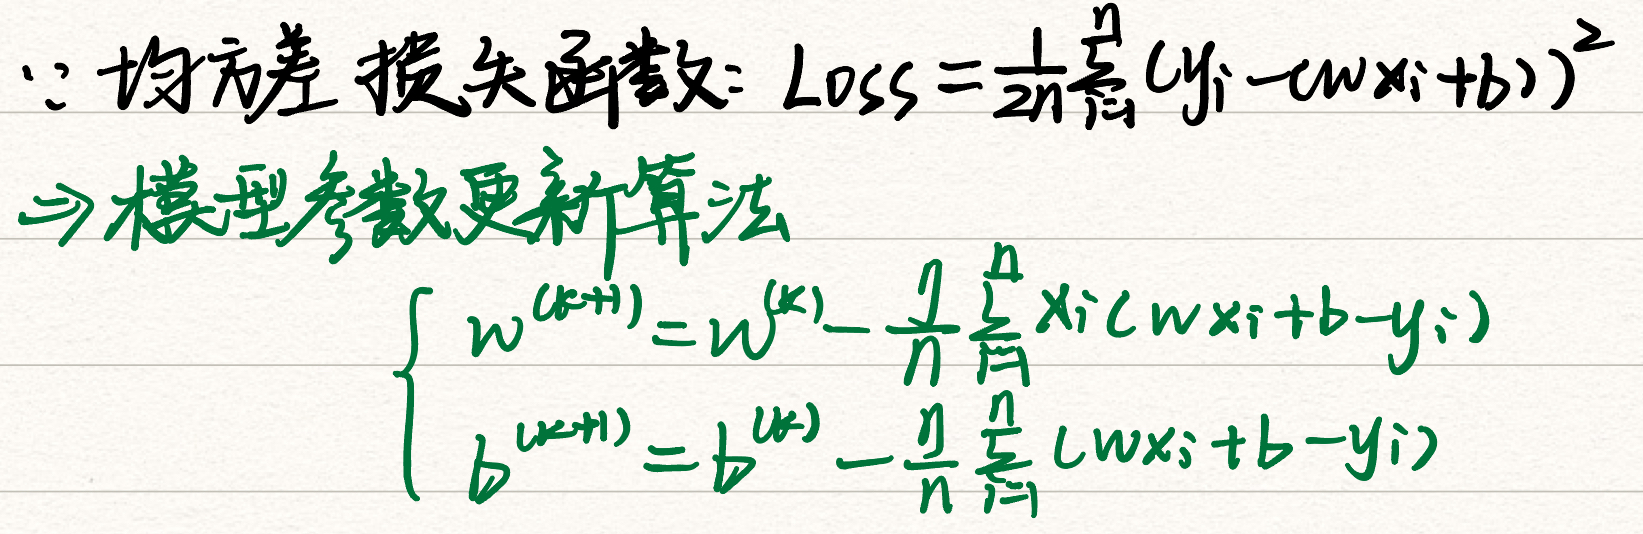 ∵ 均方差损失函数: Loss = \frac{1}{2n}\sum_{i=1}^{n}(y_i-(wx_i+b))^2
⇒ 模型参数更新算法
w^{(k+1)} = w^{(k)} - \frac{η}{n}\sum_{i=1}^{n} x_i(wx_i+b-y_i)
b^{(k+1)} = b^{(k)} - \frac{η}{n}\sum_{i=1}^{n}(wx_i+b-y_i)